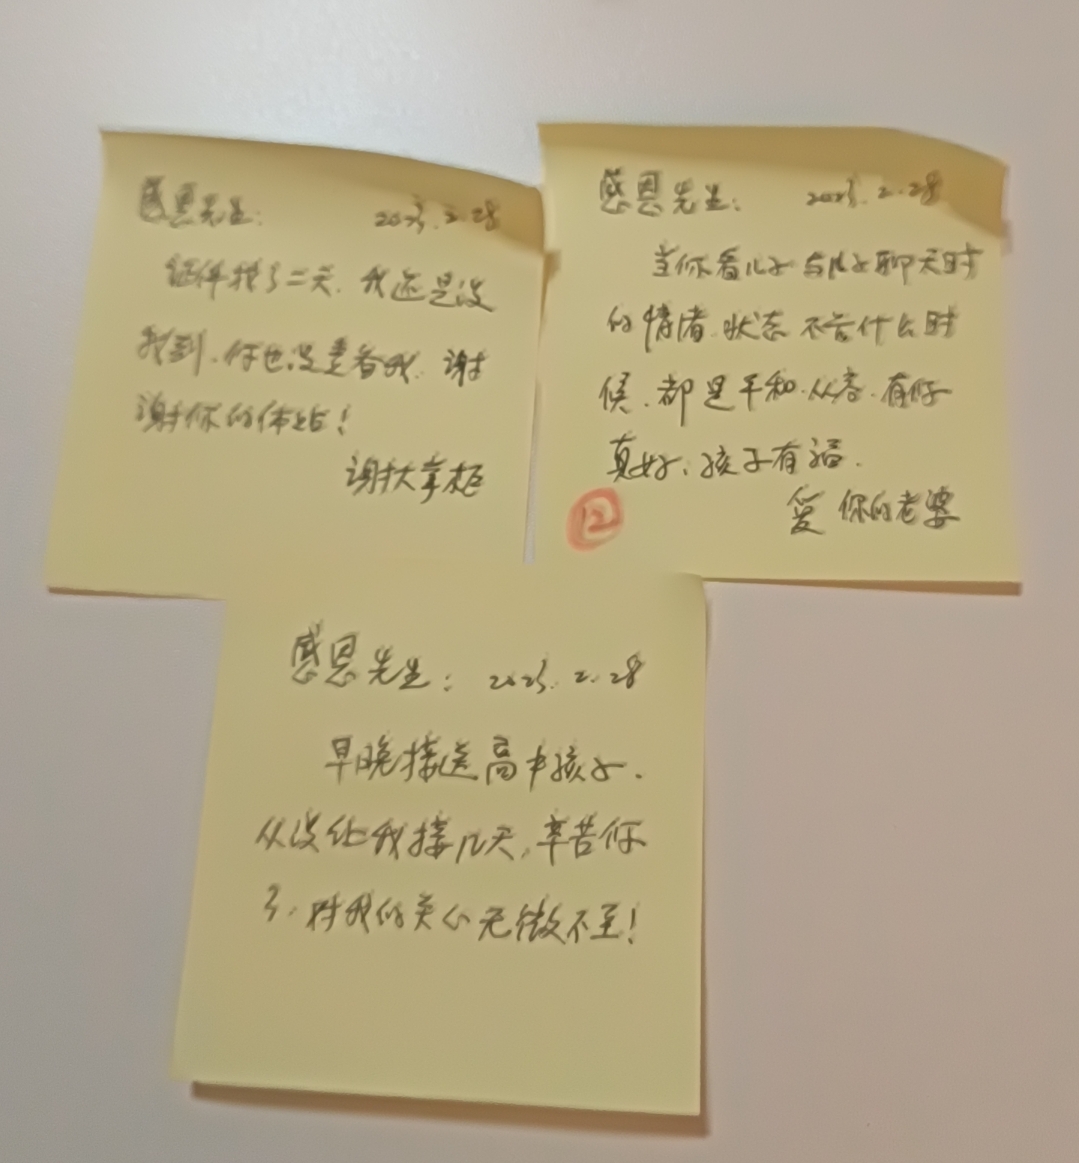 感恩先生: 2023.2.28
证件找了二天.我还是没
找到.你也没责备我.谢
谢你的体贴!
谢大掌柜
感恩先生: 2023.2.28
当你看儿子与儿子聊天时
的情绪.状态 不管什么时
候.都是平和.从容.有你
真好、孩子有福.
爱你的老婆
12
感恩先生: 2023.2.28
早晚接送高中孩子.
从没让我接几天,辛苦你
了.对我的关心无微不至!